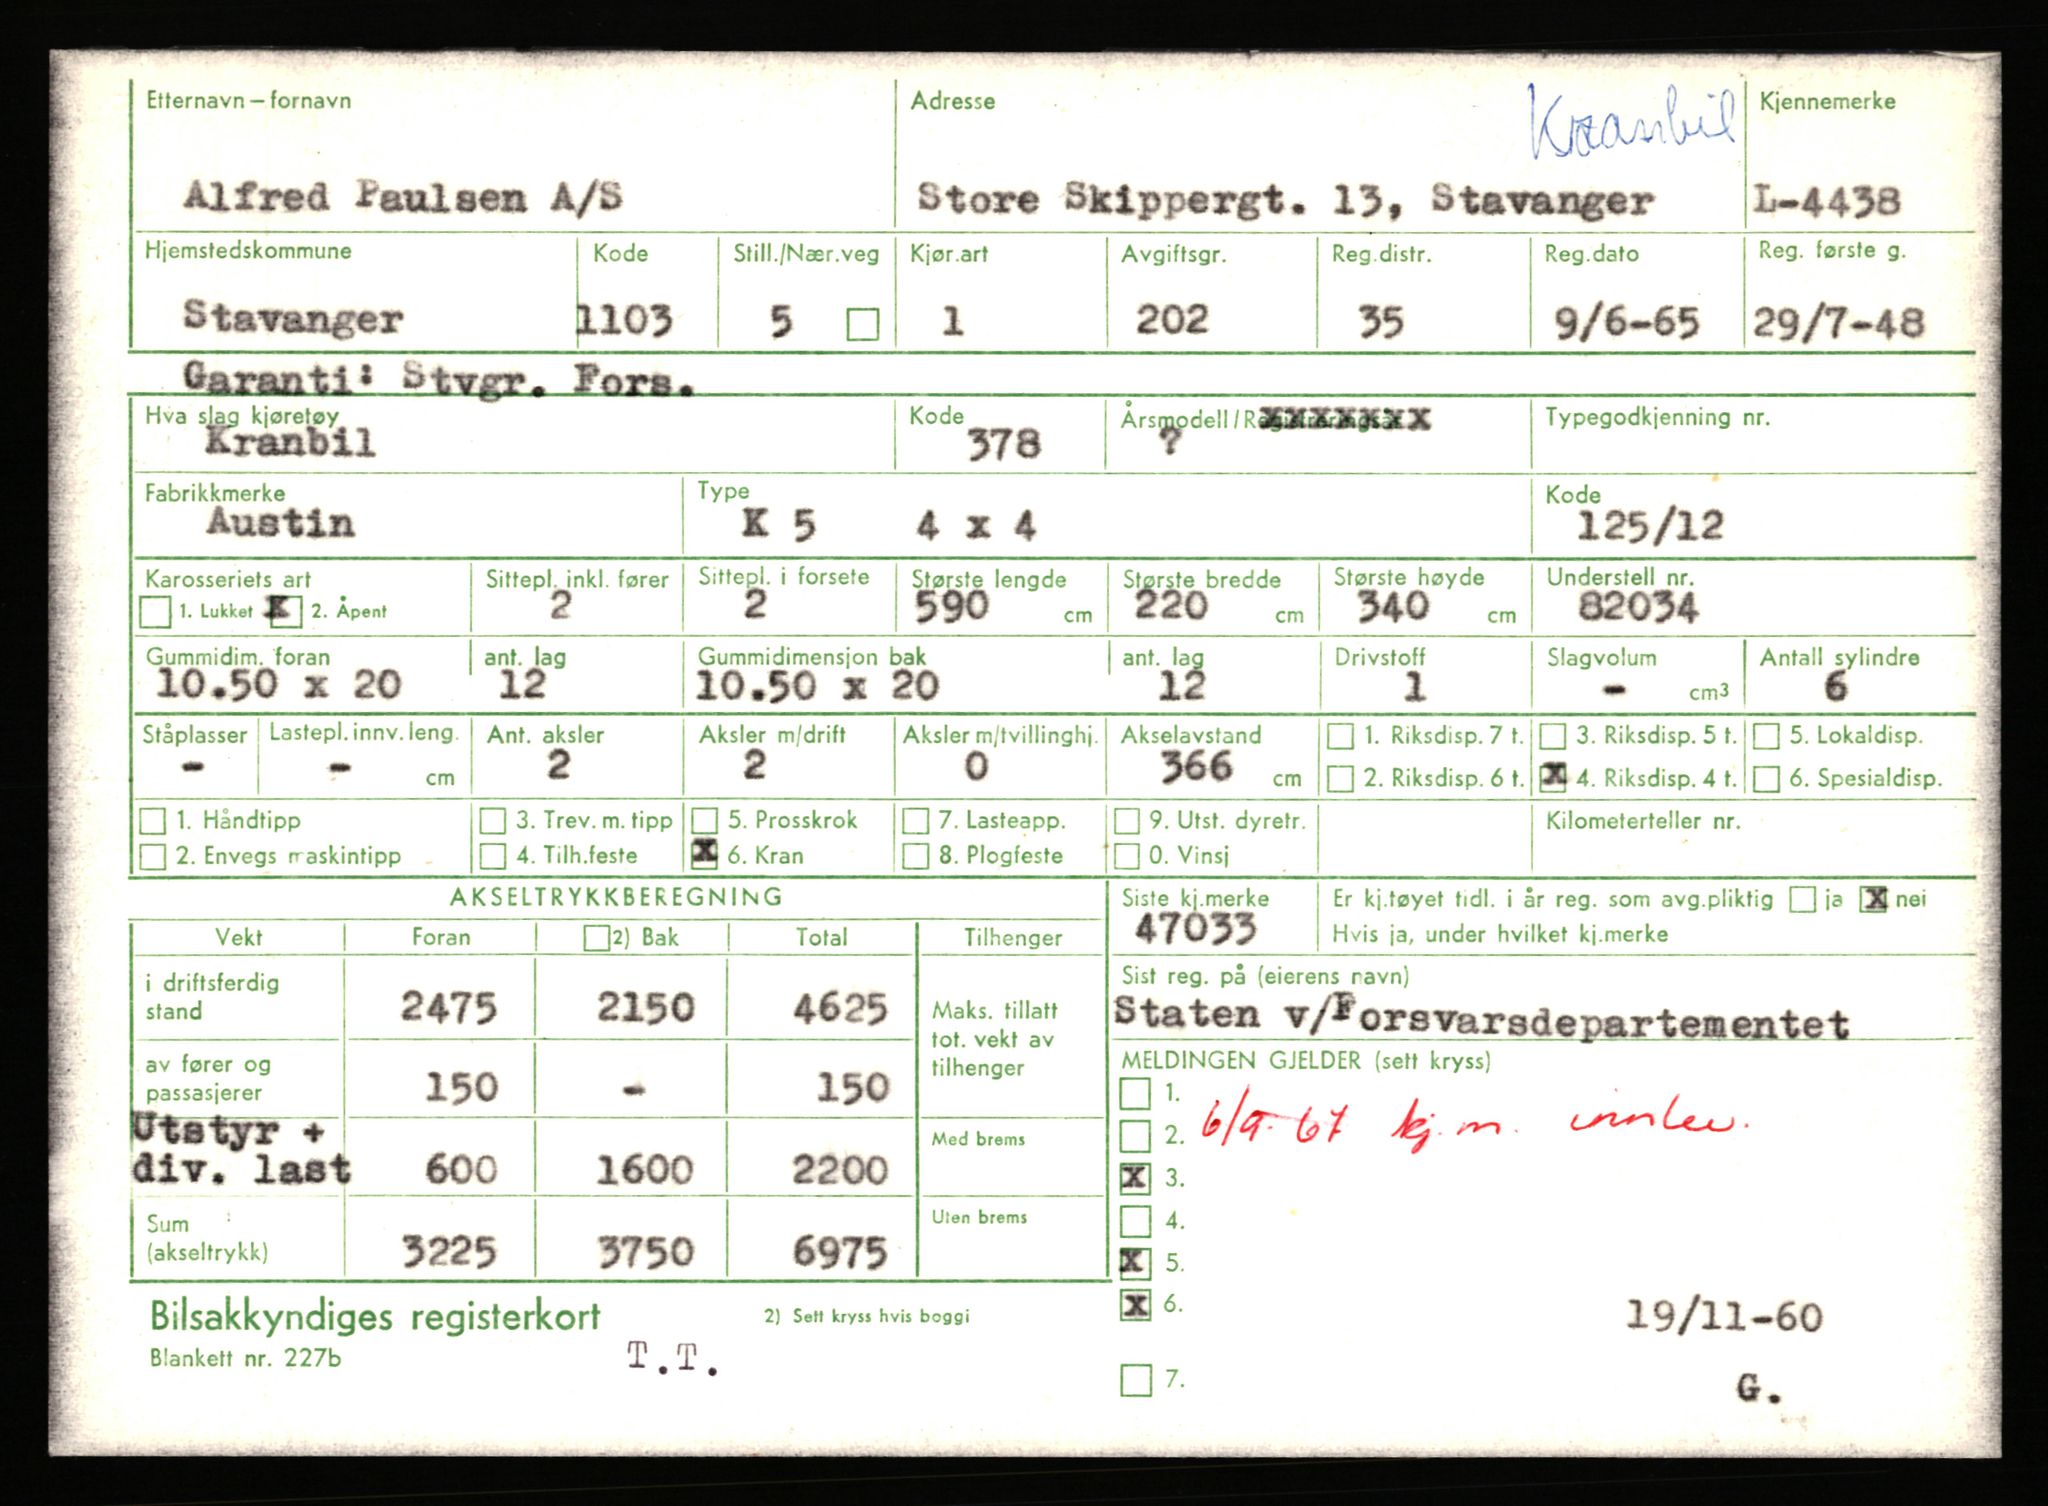 Etternavn – fornavn Adresse Kranbil Kjennemerke
Alfred Paulsen A/S Store Skippergt. 13, Stavanger L-4438
Hjemstedskommune Kode Still./Nær.veg Kjør.art Avgiftsgr. Reg.distr. Reg.dato Reg. første g.
Stavanger 1103 5 1 202 35 9/6-65 29/7-48
Garanti: Stvgr. Fors.
Hva slag kjøretøy Kode Årsmodell/Registreringsår Typegodkjenning nr.
Kranbil 378 ?
Fabrikkmerke Type Kode
Austin K 5 4 x 4 125/12
Karosseriets art Sittepl. inkl. fører Sittepl. i forsete Største lengde Største bredde Største høyde Understell nr.
1. Lukket X 2. Åpent 2 2 590 cm 220 cm 340 cm 82034
Gummidim. foran ant. lag Gummidimensjon bak ant. lag Drivstoff Slagvolum Antall sylindre
10.50 x 20 12 10.50 x 20 12 1 - cm3 6
Ståplasser Lastepl. innv. leng. Ant. aksler Aksler m/drift Aksler m/tvillinghj. Akselavstand 1. Riksdisp. 7 t. 3. Riksdisp. 5 t. 5. Lokaldisp.
- - cm 2 2 0 366 cm 2. Riksdisp. 6 t. X 4. Riksdisp. 4 t. 6. Spesialdisp.
1. Håndtipp 3. Trev. m. tipp 5. Prosskrok 7. Lasteapp. 9. Utst. dyretr. Kilometerteller nr.
2. Envegs maskintipp 4. Tilh.feste X 6. Kran 8. Plogfeste 0. Vinsj
AKSELTRYKKBEREGNING Siste kj.merke Er kj.tøyet tidl. i år reg. som avg.pliktig ja X nei
47033 Hvis ja, under hvilket kj.merke
Vekt Foran 2) Bak Total Tilhenger
Sist reg. på (eierens navn)
Staten v/Forsvarsdepartementet
i driftsferdig stand 2475 2150 4625 Maks. tillatt tot. vekt av tilhenger
av fører og passasjerer 150 - 150
Utstyr + div. last 600 1600 2200 Med brems
Sum (akseltrykk) 3225 3750 6975 Uten brems
MELDINGEN GJELDER (sett kryss)
1.
2. 6/9-67 kj.m. innlev.
X 3.
4.
X 5.
X 6. 19/11-60
7. G.
Bilsakkyndiges registerkort 2) Sett kryss hvis boggi
Blankett nr. 227b T.T.